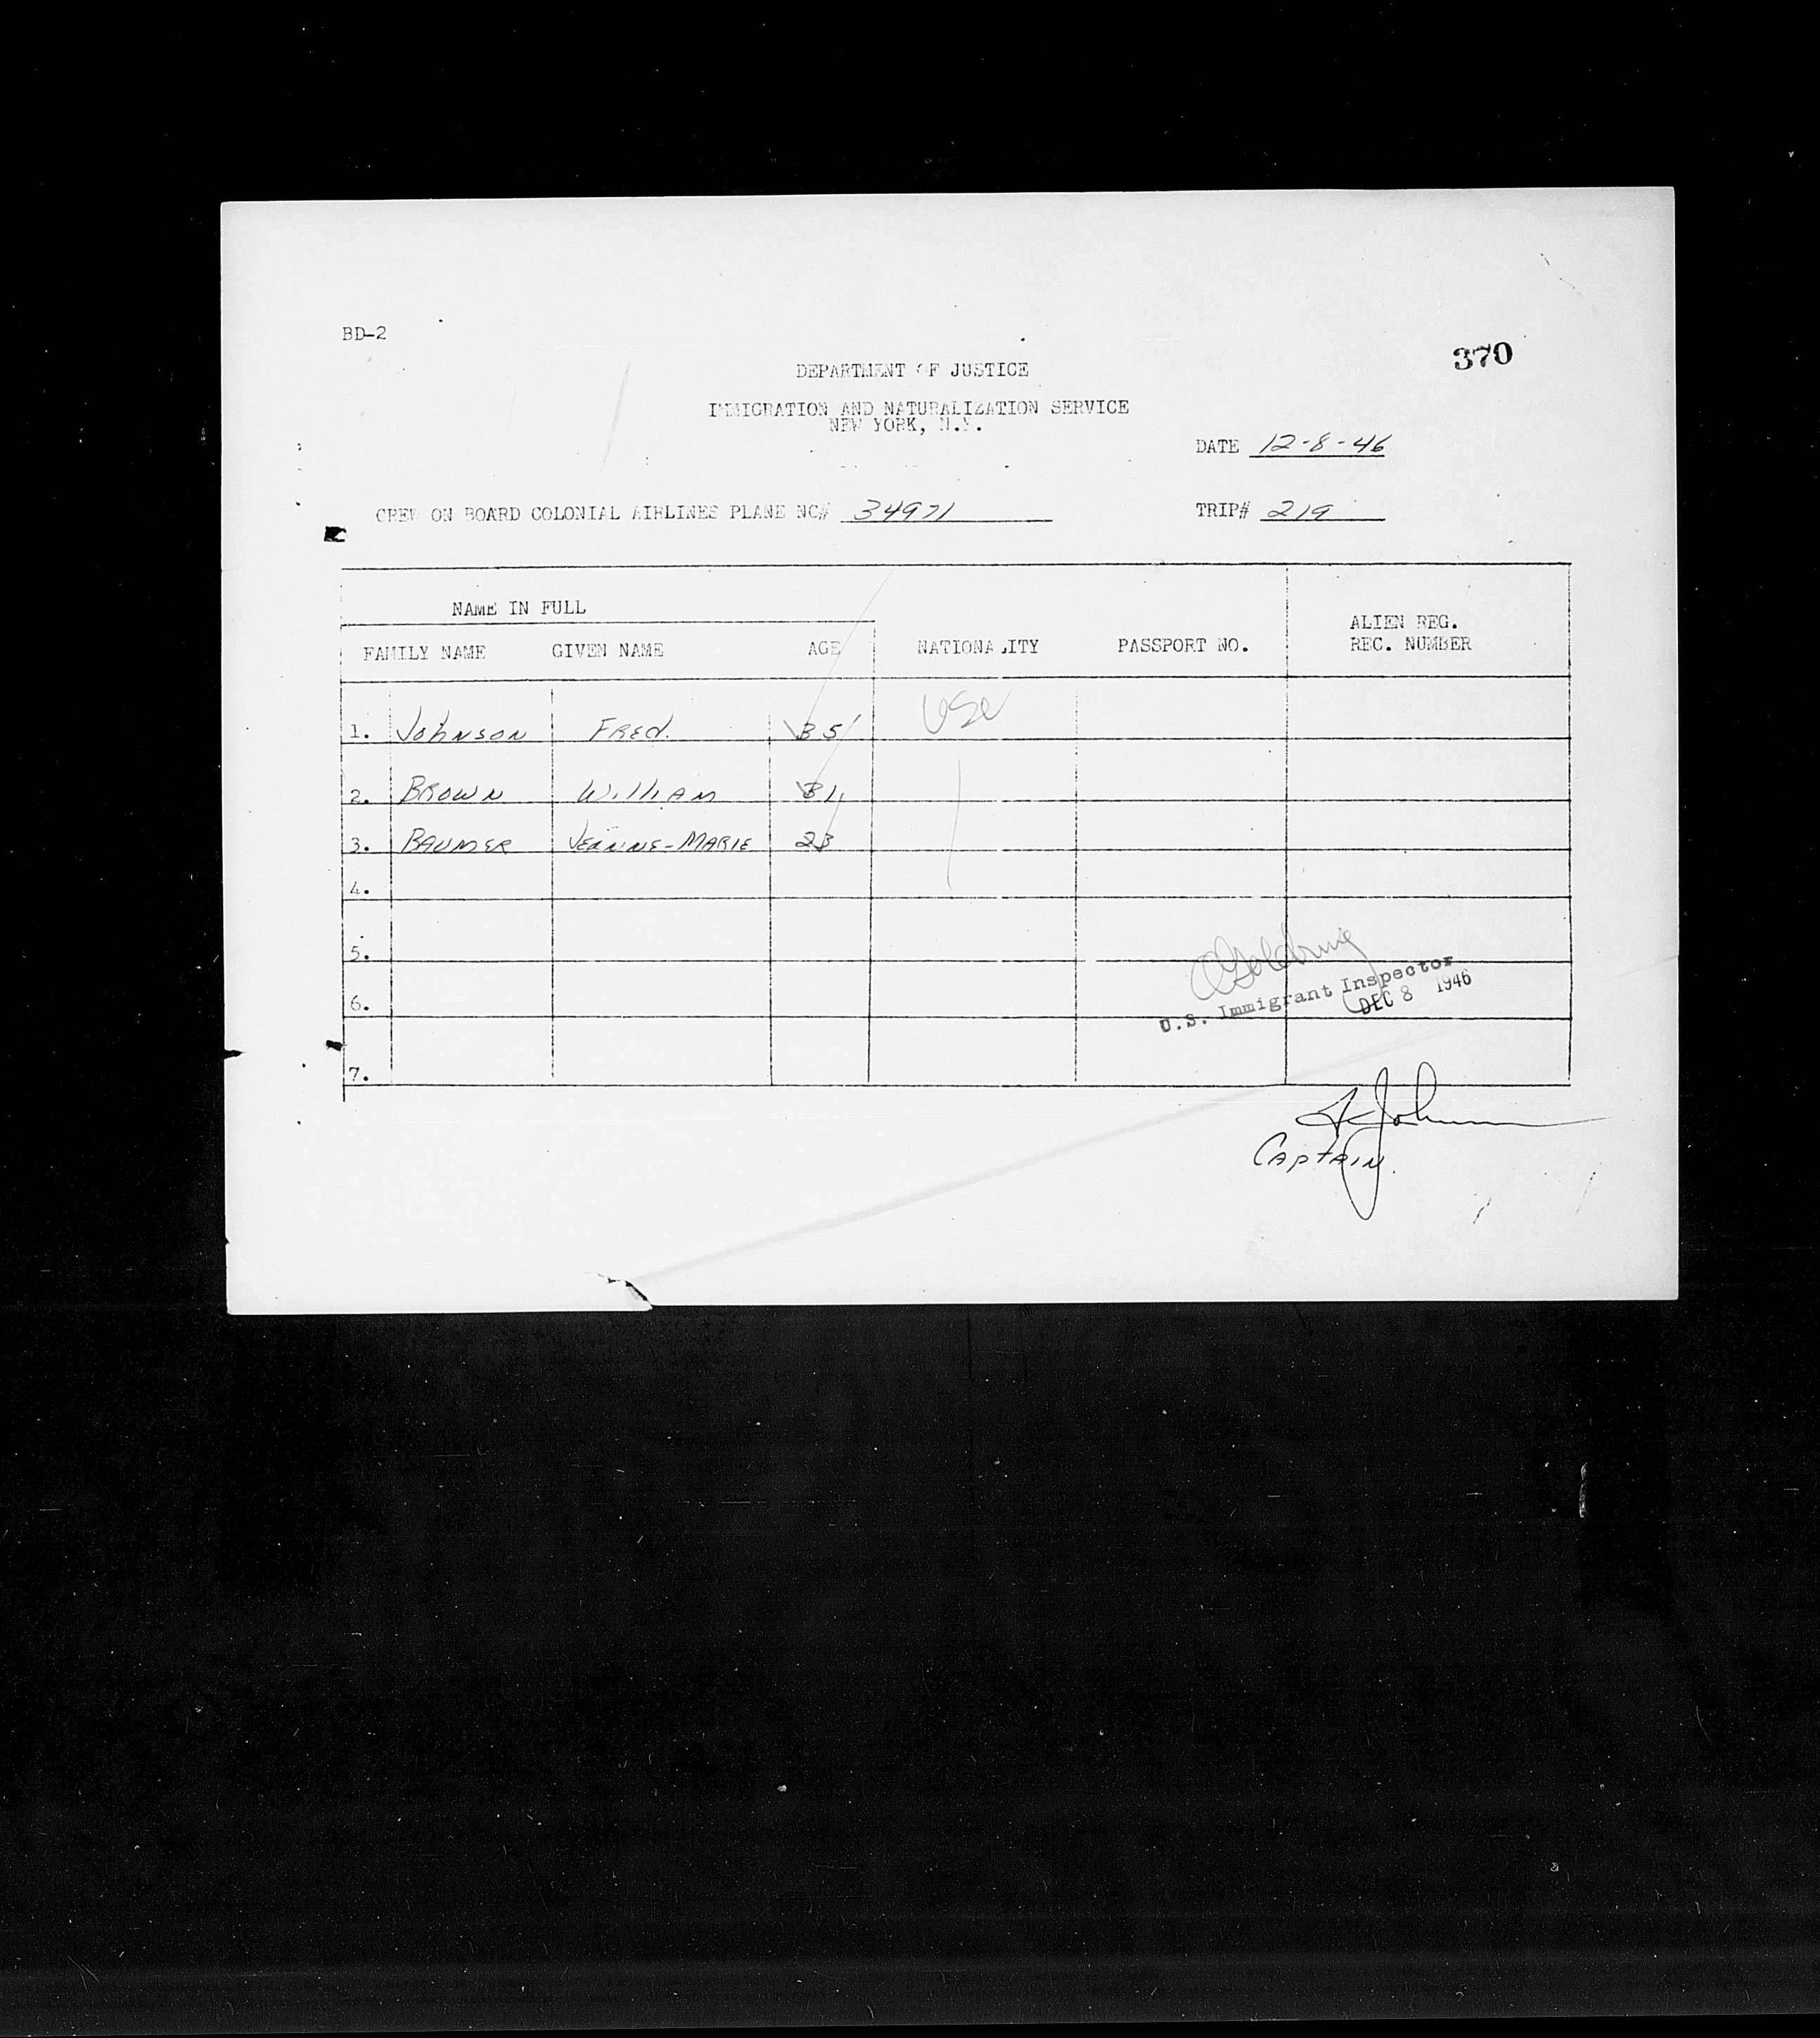 BD-2
370
DEPARTMENT OF JUSTICE
IMMIGRATION AND NATURALIZATION SERVICE
NEW YORK, N.Y.
DATE 12-8-46
CREW ON BOARD COLONIAL AIRLINES PLANE NC# 34971 TRIP# 219
NAME IN FULL
ALIEN REG.
FAMILY NAME GIVEN NAME AGE NATIONALITY PASSPORT NO. REC. NUMBER
1. JOHNSON FRED. 35 USC
2. BROWN WILLIAM 31
3. BAUMER JEANNE-MARIE 23
4.
5.
6.
U.S. Immigrant Inspector
DEC 8 1946
7.
F Johnson
CAPTAIN.